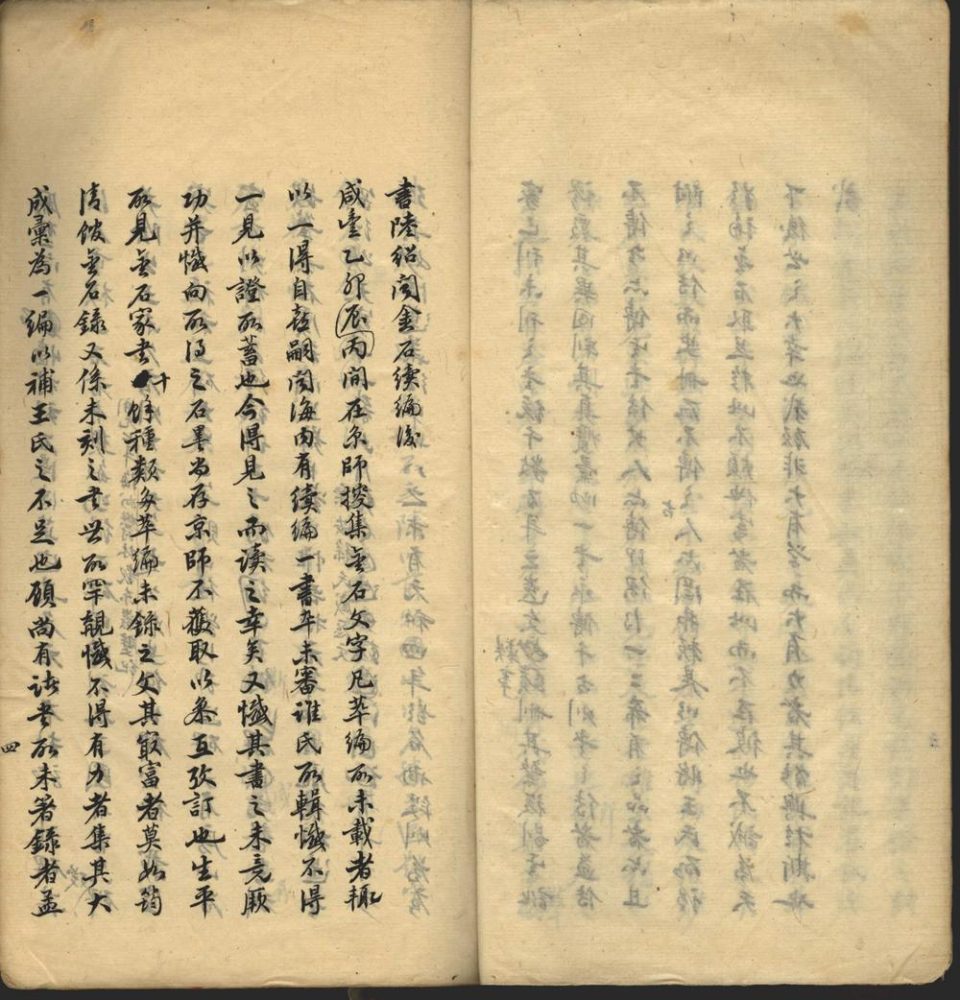 書陸紹聞金石續編後
咸豐乙卯辰丙間在京師搜集金石文字凡萃編所未載者輒
以一得自喜嗣聞海內有續編一書卒未審誰氏所輯憾不得
一見以證所蓄也今得見之而讀之幸矣又憾其書之未竟厥
功并憾向所得之石墨尚存京師不獲取以參互攷訂也生平
所見金石家書十餘種類多萃編未錄之文其最富者莫如筠
清館金石錄又係未刻之書世所罕覯憾不得有力者集其大
成彙為一編以補王氏之不足也顧尚有諸書所未著錄者孟
四